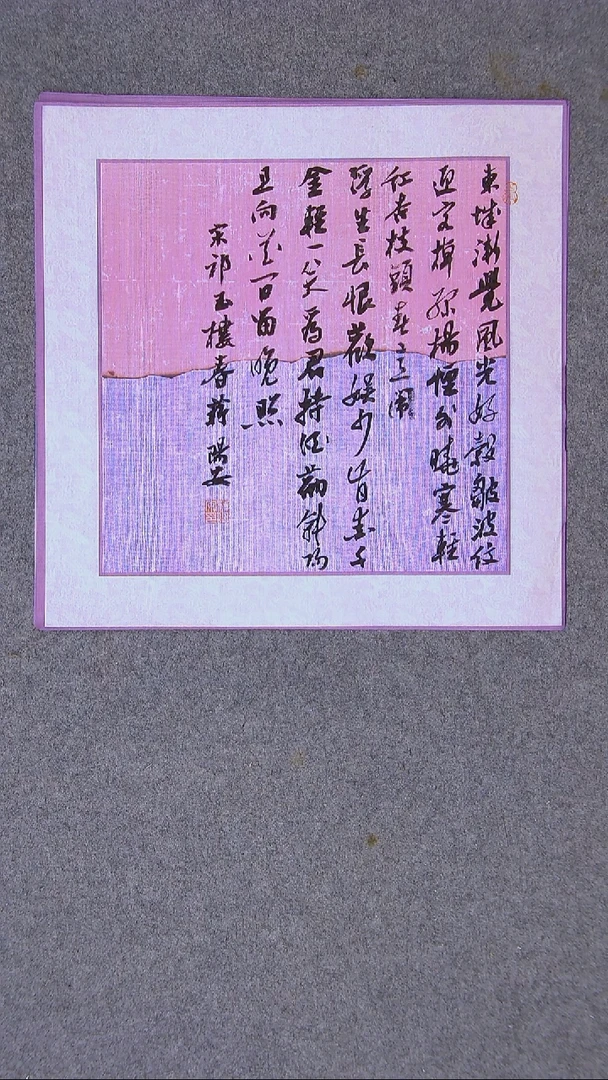 東城漸覺風光好縠皺波紋
迎客棹綠楊煙外曉寒輕
紅杏枝頭春意鬧
浮生長恨歡娱少肯愛千
金輕一笑為君持酒勸斜陽
且向花間留晚照
宋祁玉樓春